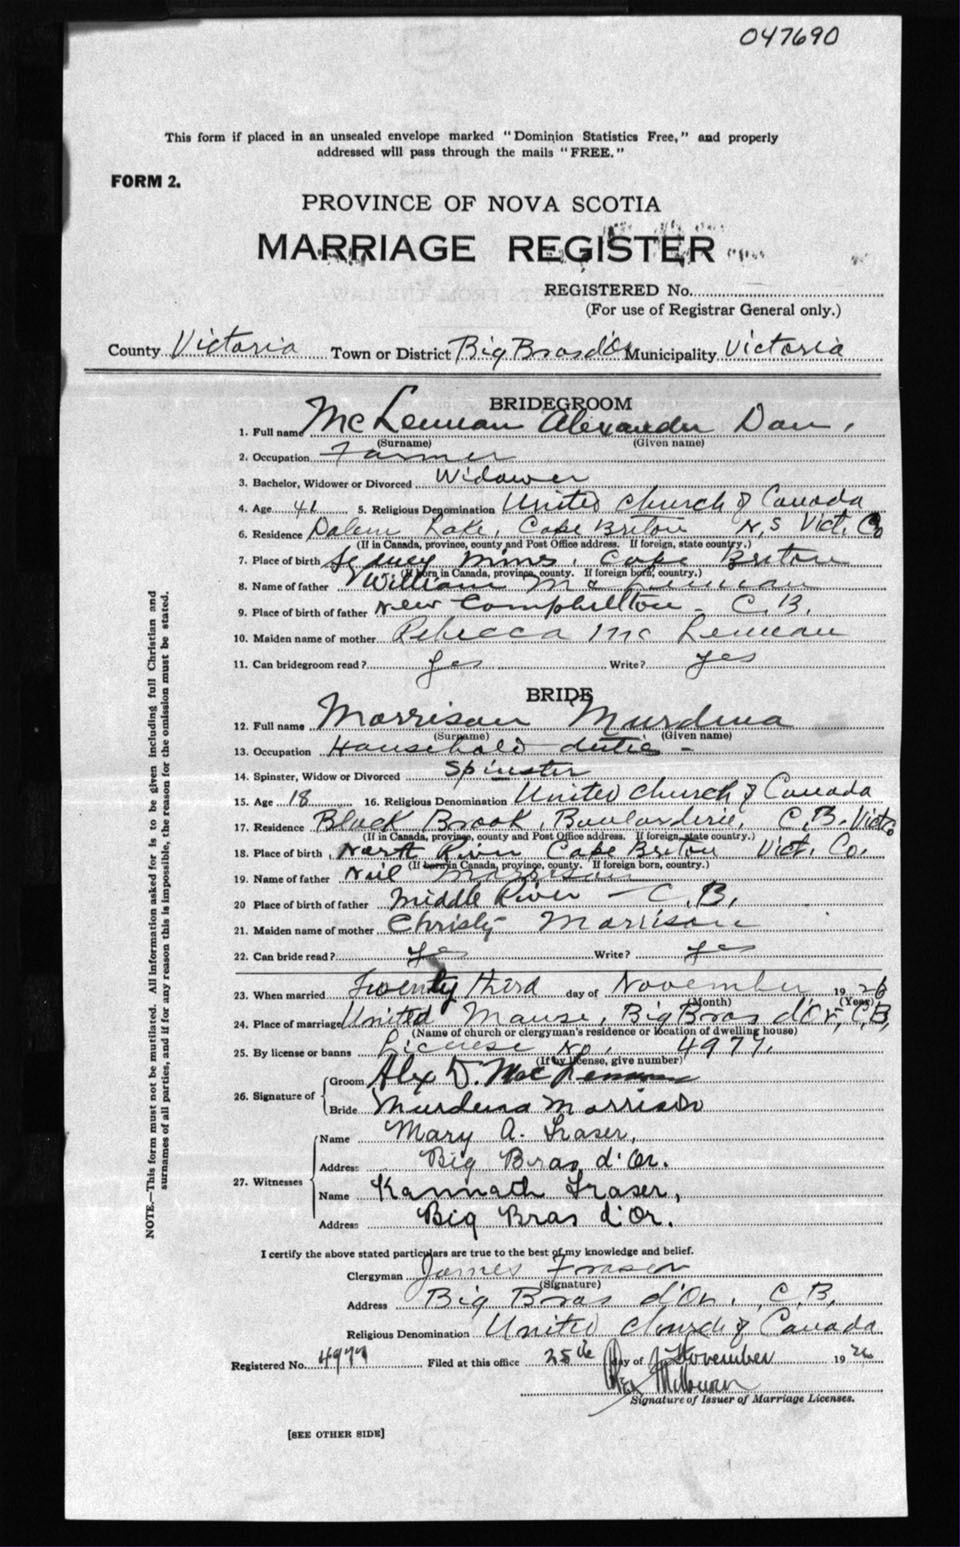 047690
This form if placed in an unsealed envelope marked "Dominion Statistics Free," and properly
addressed will pass through the mails "FREE."
FORM 2.
PROVINCE OF NOVA SCOTIA
MARRIAGE REGISTER
REGISTERED No.
(For use of Registrar General only.)
County Victoria Town or District Big Bras d'Or Municipality Victoria
BRIDEGROOM
1. Full name McLennan Alexander Dan.
(Surname) (Given name)
2. Occupation Farmer
3. Bachelor, Widower or Divorced Widower
4. Age 41 5. Religious Denomination United Church of Canada
6. Residence Dalem Lake, Cape Breton N.S Vict. Co
(If in Canada, province, county and Post Office address. If foreign, state country.)
7. Place of birth Sydney Mines, Cape Breton
(If born in Canada, province, county. If foreign born, country.)
8. Name of father William McLennan
9. Place of birth of father New Campbellton - C.B.
10. Maiden name of mother Rebecca McLennan
11. Can bridegroom read? yes Write? yes
BRIDE
12. Full name Morrison Murdena
(Surname) (Given name)
13. Occupation Household duties -
14. Spinster, Widow or Divorced Spinster
15. Age 18 16. Religious Denomination United Church of Canada
17. Residence Black Brook, Boularderie, C.B. Vict.
(If in Canada, province, county and Post Office address. If foreign, state country.)
18. Place of birth North River Cape Breton Vict. Co.
(If born in Canada, province, county. If foreign born, country.)
19. Name of father Neil Morrison
20 Place of birth of father Middle River - C.B.
21. Maiden name of mother Christy Morrison
22. Can bride read? yes Write? yes
23. When married Twenty third day of November 1926
(Month) (Year)
24. Place of marriage United Manse, Big Bras d'Or, C.B,
(Name of church or clergyman's residence or location of dwelling house)
25. By license or banns License No. 4977.
(If by license, give number)
26. Signature of Groom Alex D. MacLennan
Bride Murdena Morrison
27. Witnesses Name Mary A. Fraser,
Address Big Bras d'Or.
Name Kannath Fraser,
Address Big Bras d'Or.
I certify the above stated particulars are true to the best of my knowledge and belief.
Clergyman James Fraser
(Signature)
Address Big Bras d'Or. C.B.
Religious Denomination United Church of Canada
Registered No. 4977 Filed at this office 25th day of November 1926
Signature of Issuer of Marriage Licenses.
[SEE OTHER SIDE]
NOTE.—This form must not be mutilated. All information asked for is to be given including full Christian and
surnames of all parties, and if for any reason this is impossible, the reason for the omission must be stated.